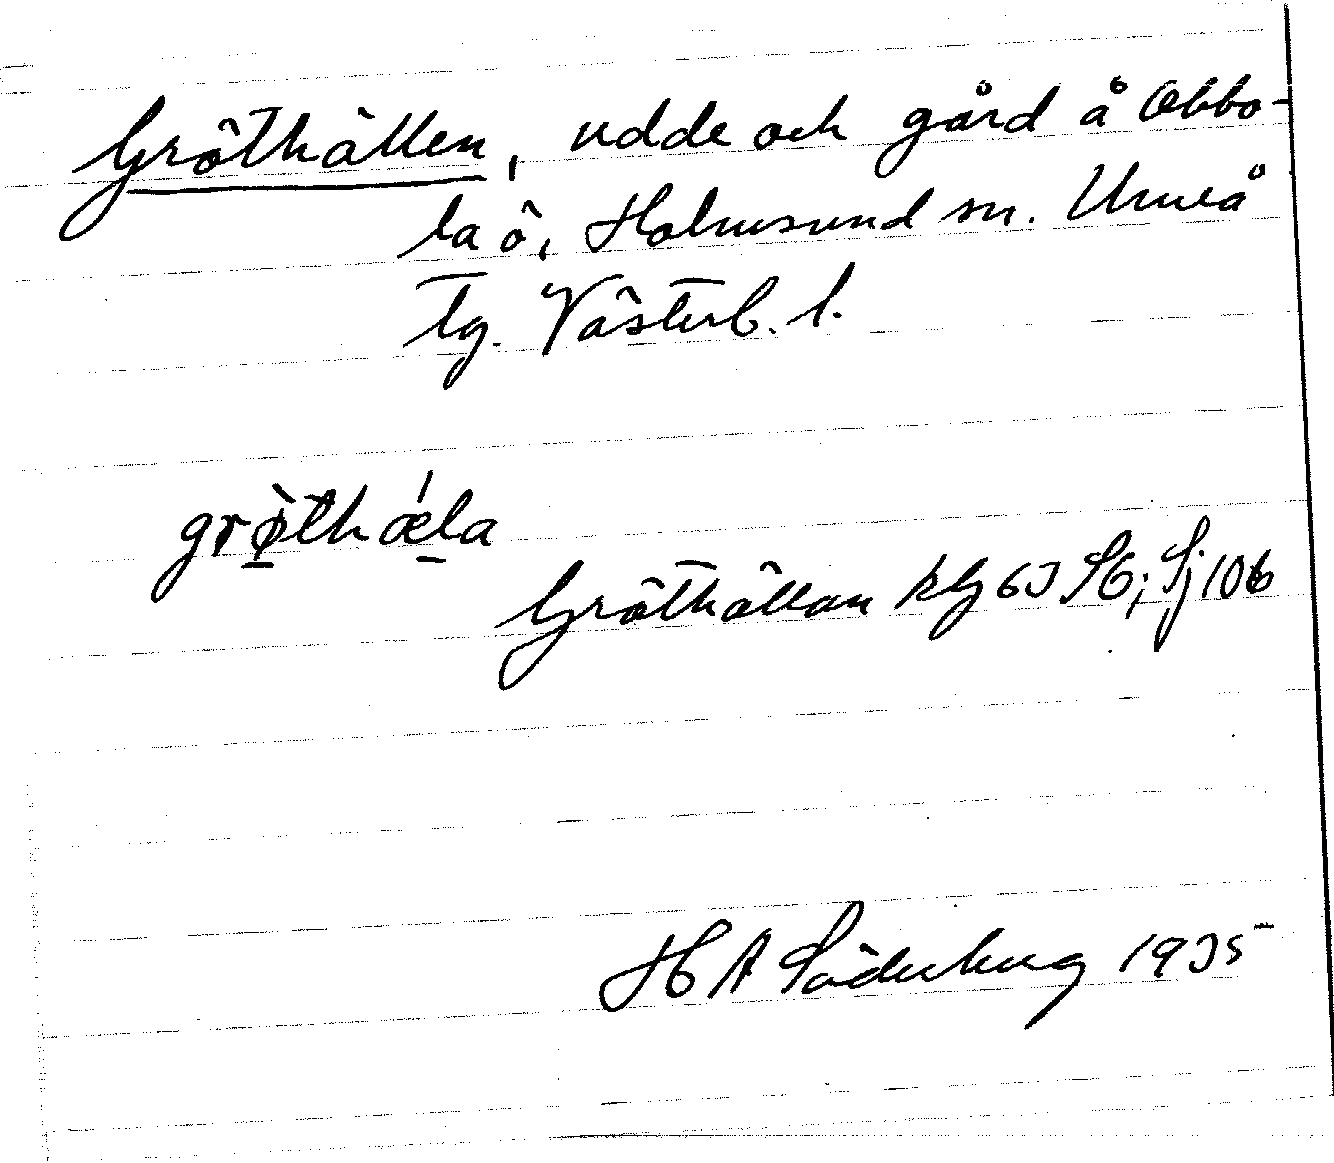 Gröthällen, udde och gård å Obbo-
la ö, Holmsund sn. Umeå
tg. Västerb. l.
grø̀thǽla
Gröthällan klg 63 SO; Sj 106
H A Söderberg 1935